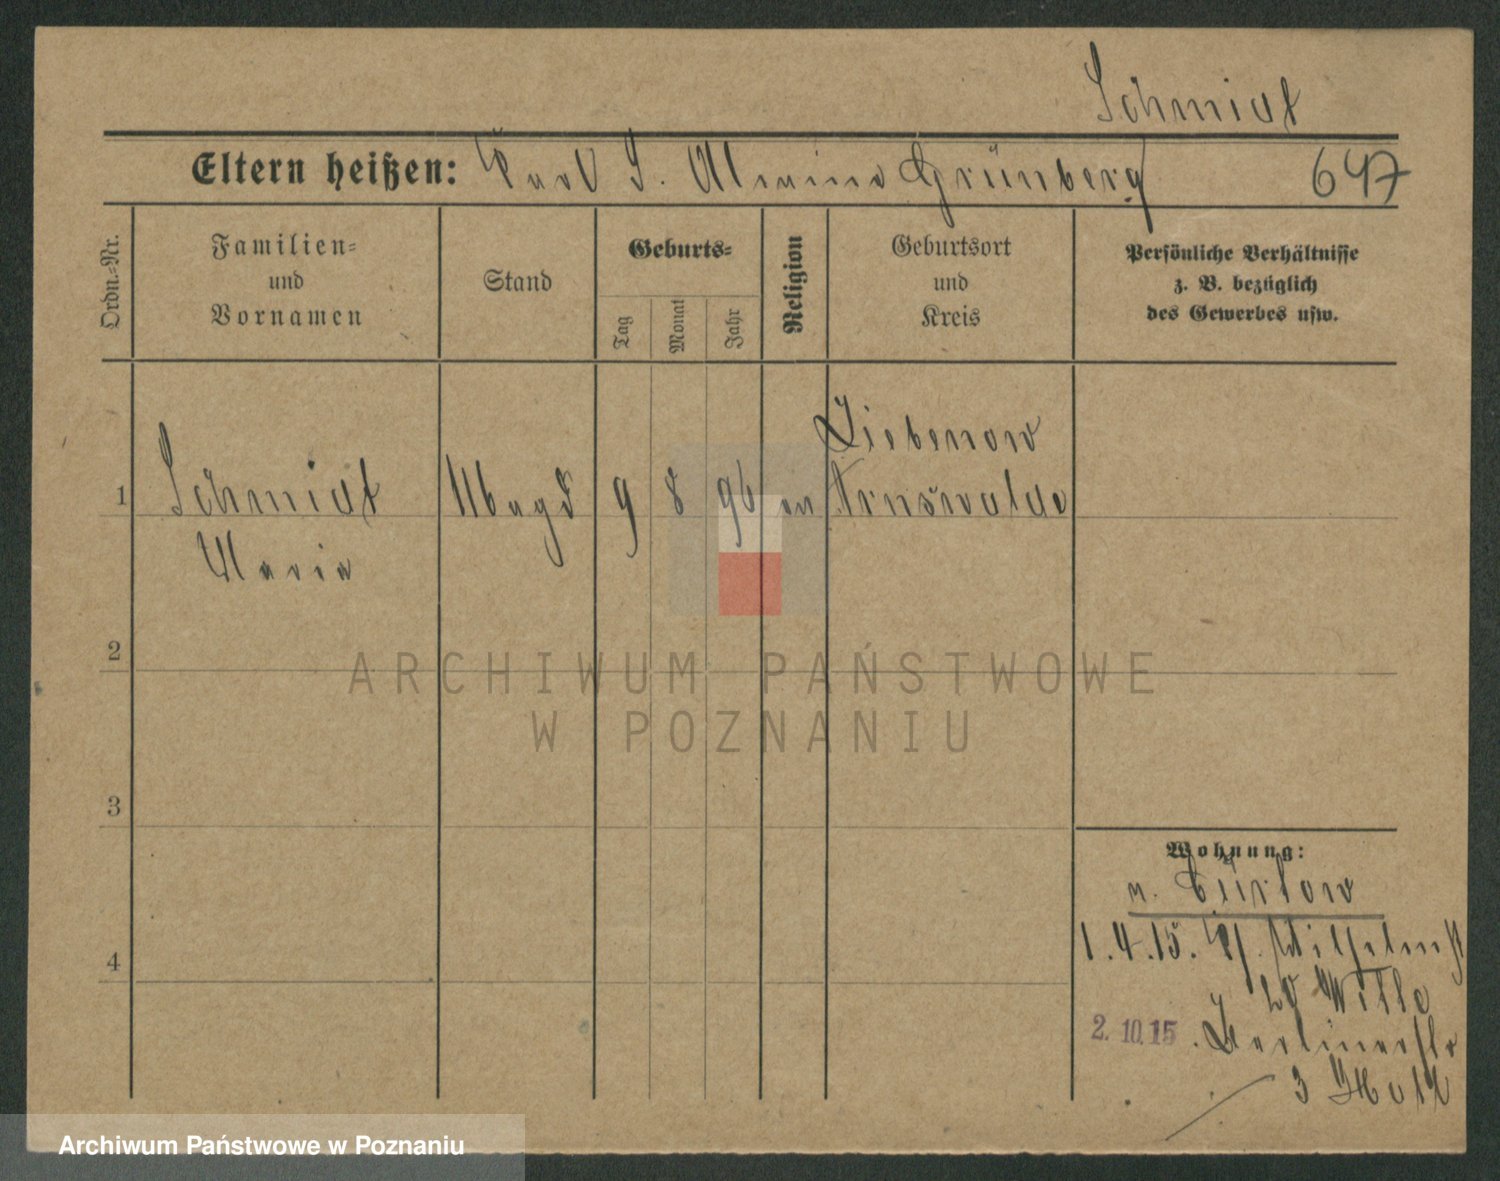 Schmidt
Eltern heißen: Karl S. Almine Grünberg 647
Ordn.=Nr.
Familien=
und
Vornamen
Stand
Geburts=
Tag
Monat
Jahr
Religion
Geburtsort
und
Kreis
Persönliche Verhältnisse
z. B. bezüglich
des Gewerbes usw.
1
Schmidt
Maria
Magd
9 8 96
ev
Liebenow
Arnswalde
2
ARCHIWUM PAŃSTWOWE
W POZNANIU
3
4
Wohnung:
n.
1.4.15. Wilhelmst
Wille
2. 10. 15 . Berlinerstr
3
Archiwum Państwowe w Poznaniu